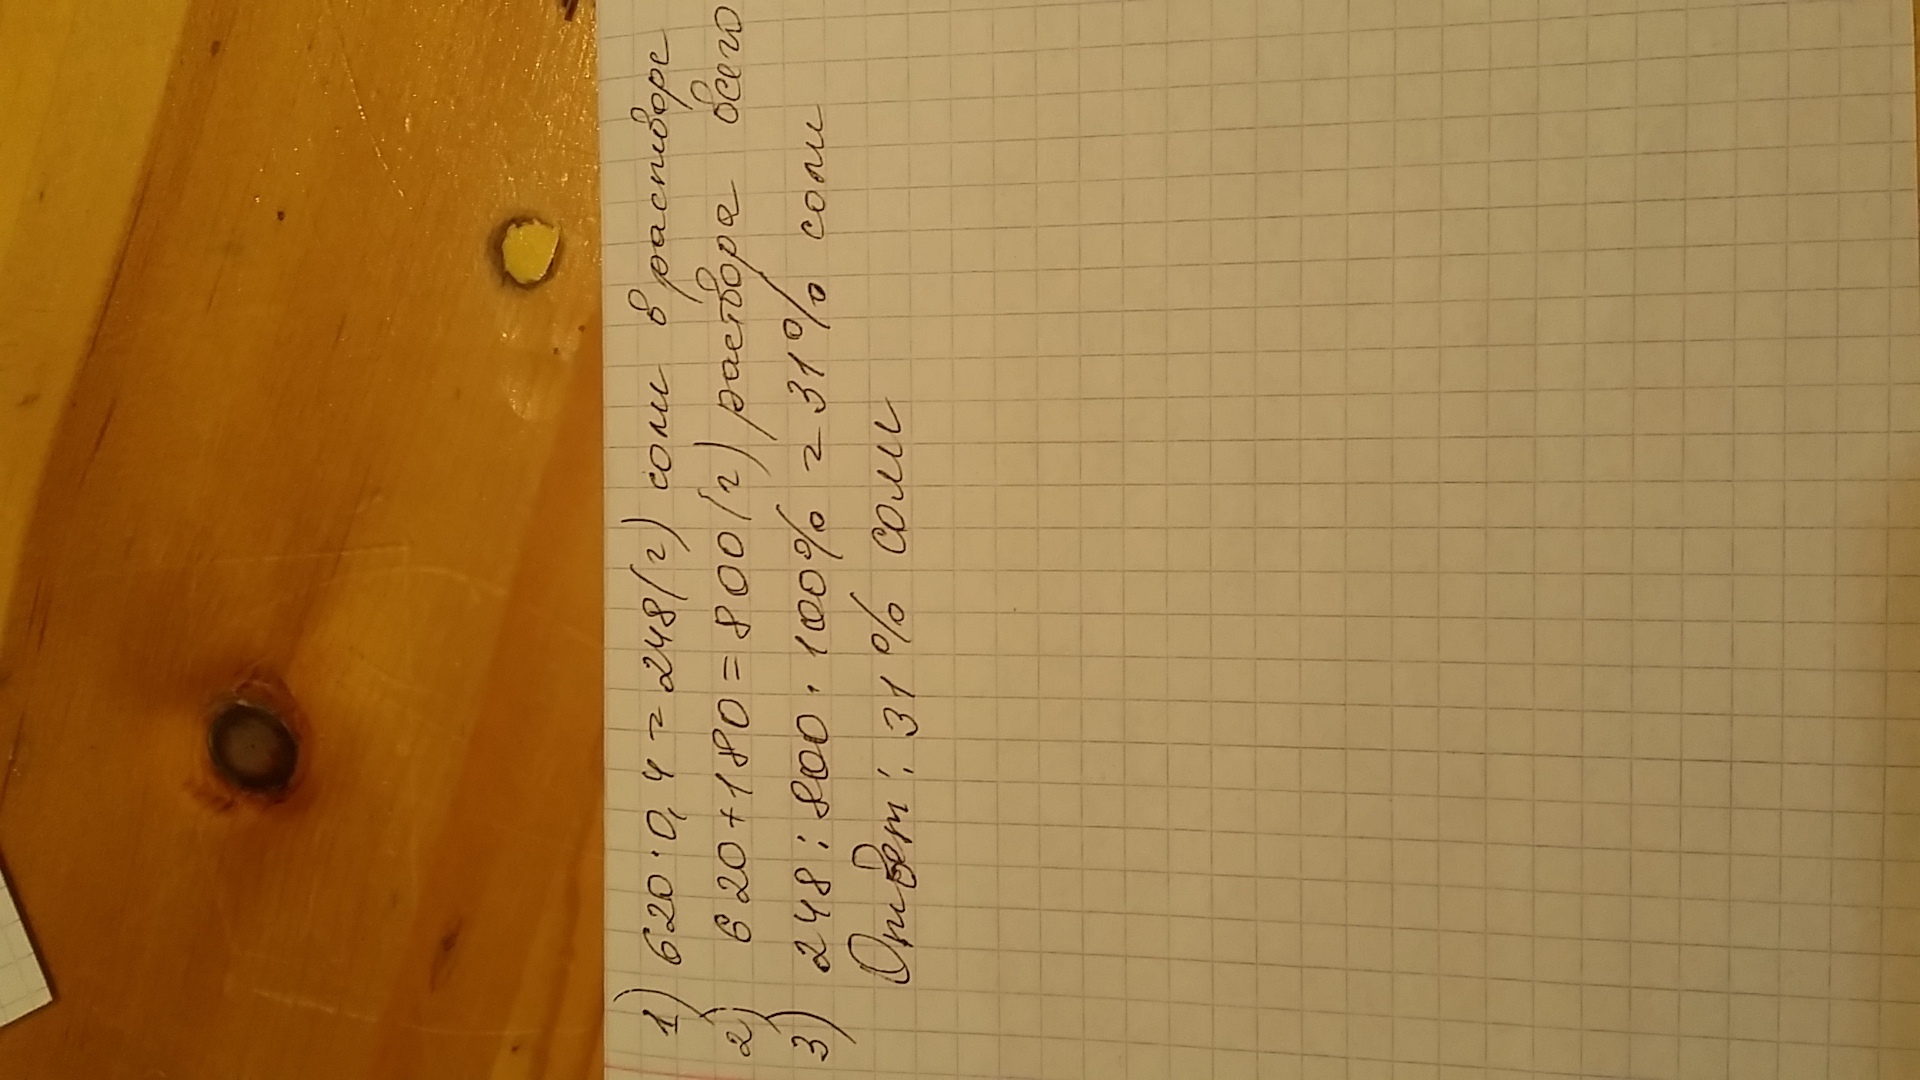 1) 620 · 0,4 = 248 (г) соли в растворе
2) 620 + 180 = 800 (г) раствора всего
3) 248 : 800 · 100% = 31% соли
Ответ: 31% соли